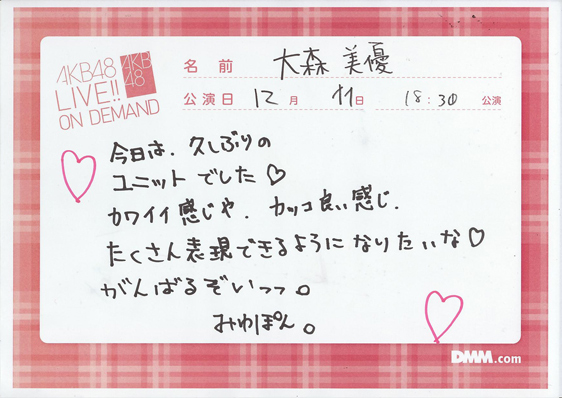 AKB48
LIVE!!
ON DEMAND
AKB
48
名前 大森美優
公演日 12月 11日 18:30 公演
今日は、久しぶりの
ユニットでした♡
カワイイ感じや、カッコ良い感じ、
たくさん表現できるようになりたいな♡
がんばるぞいっっ。
みゆぽん。
DMM.com